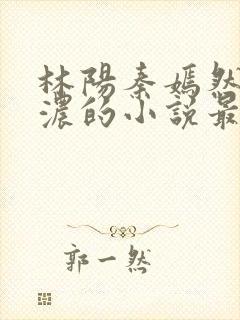 林陽秦嫣然
濃的小説最
郭一然